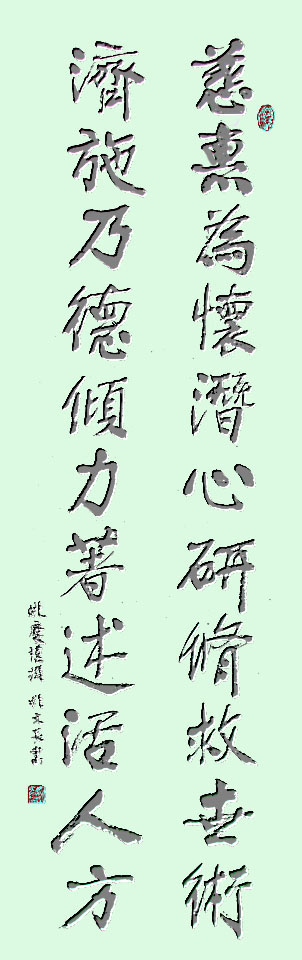 慈惠為懷潛心研修救世術
濟施乃德傾力著述活人方